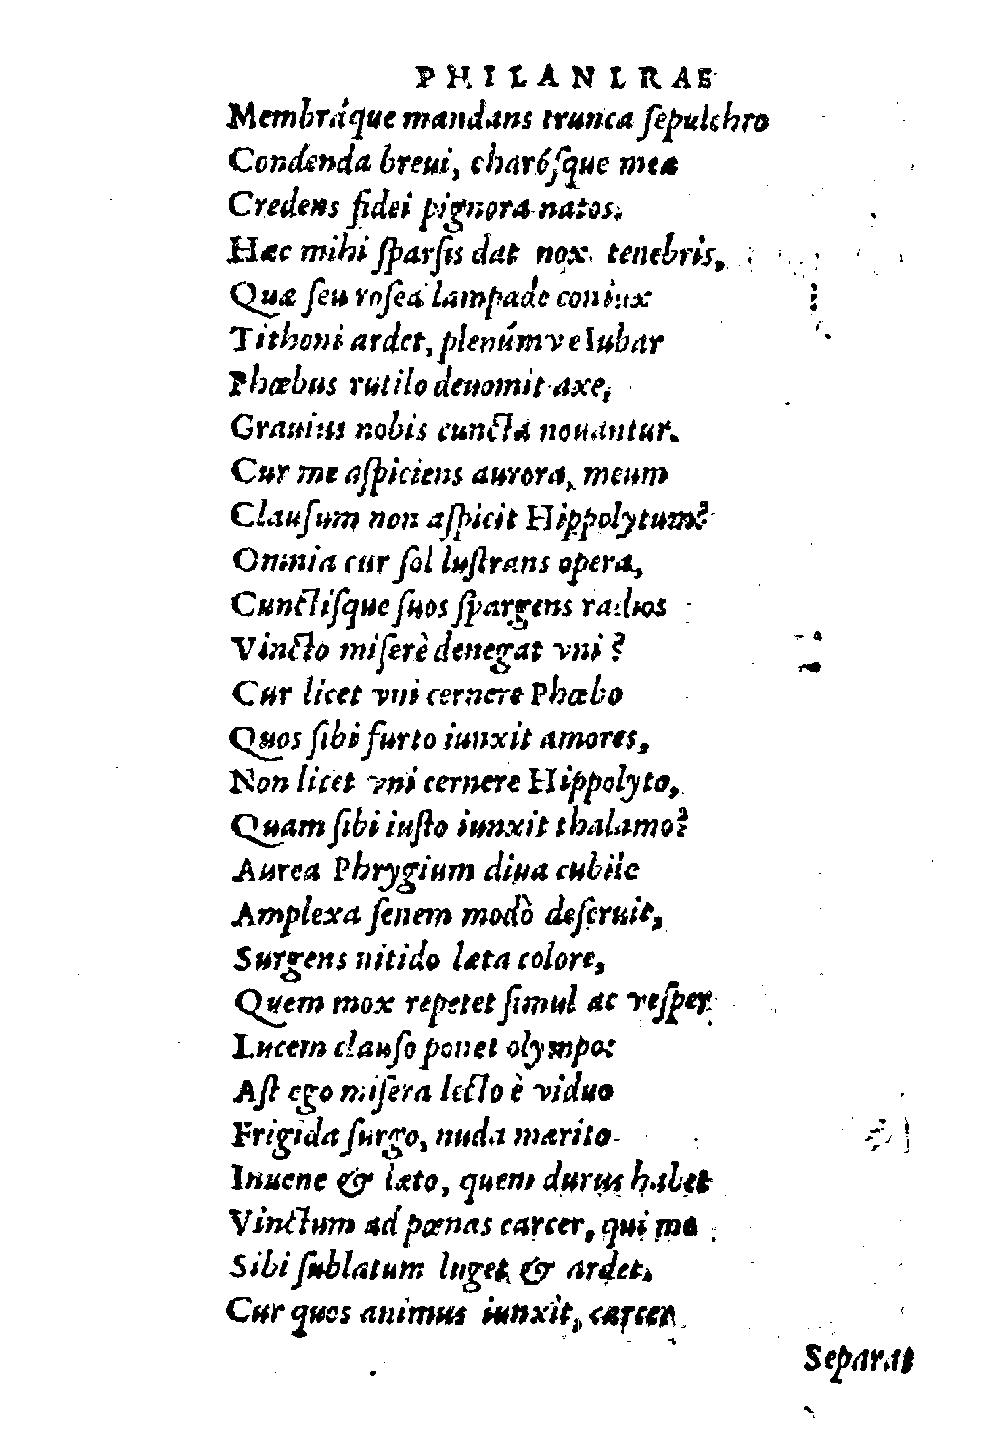 PHILANIRAE
Membráque mandans trunca ſepulchro
Condenda breui, charóſque mea
Credens fidei pignora natos.
Hæc mihi ſparſis dat nox tenebris,
Quæ ſeu roſea lampade coniux
Tithoni ardet, plenúmve Iubar
Phœbus rutilo deuomit axe,
Grauius nobis cuncta nouantur.
Cur me aſpiciens aurora, meum
Clauſum non aſpicit Hippolytum?
Omnia cur ſol luſtrans opera,
Cunctiſque ſuos ſpargens radios
Vincto miſerè denegat vni?
Cur licet vni cernere Phœbo
Quos ſibi furto iunxit amores,
Non licet vni cernere Hippolyto,
Quam ſibi iuſto iunxit thalamo?
Aurea Phrygium diua cubile
Amplexa ſenem modò deſeruit,
Surgens nitido læta colore,
Quem mox repetet ſimul ac veſper
Lucem clauſo ponet olympo:
Aſt ego miſera lecto è viduo
Frigida ſurgo, nuda marito
Iuuene & læto, quem durus habet
Vinctum ad pœnas carcer, qui me
Sibi ſublatum luget & ardet.
Cur quos animus iunxit, carcer
Separat